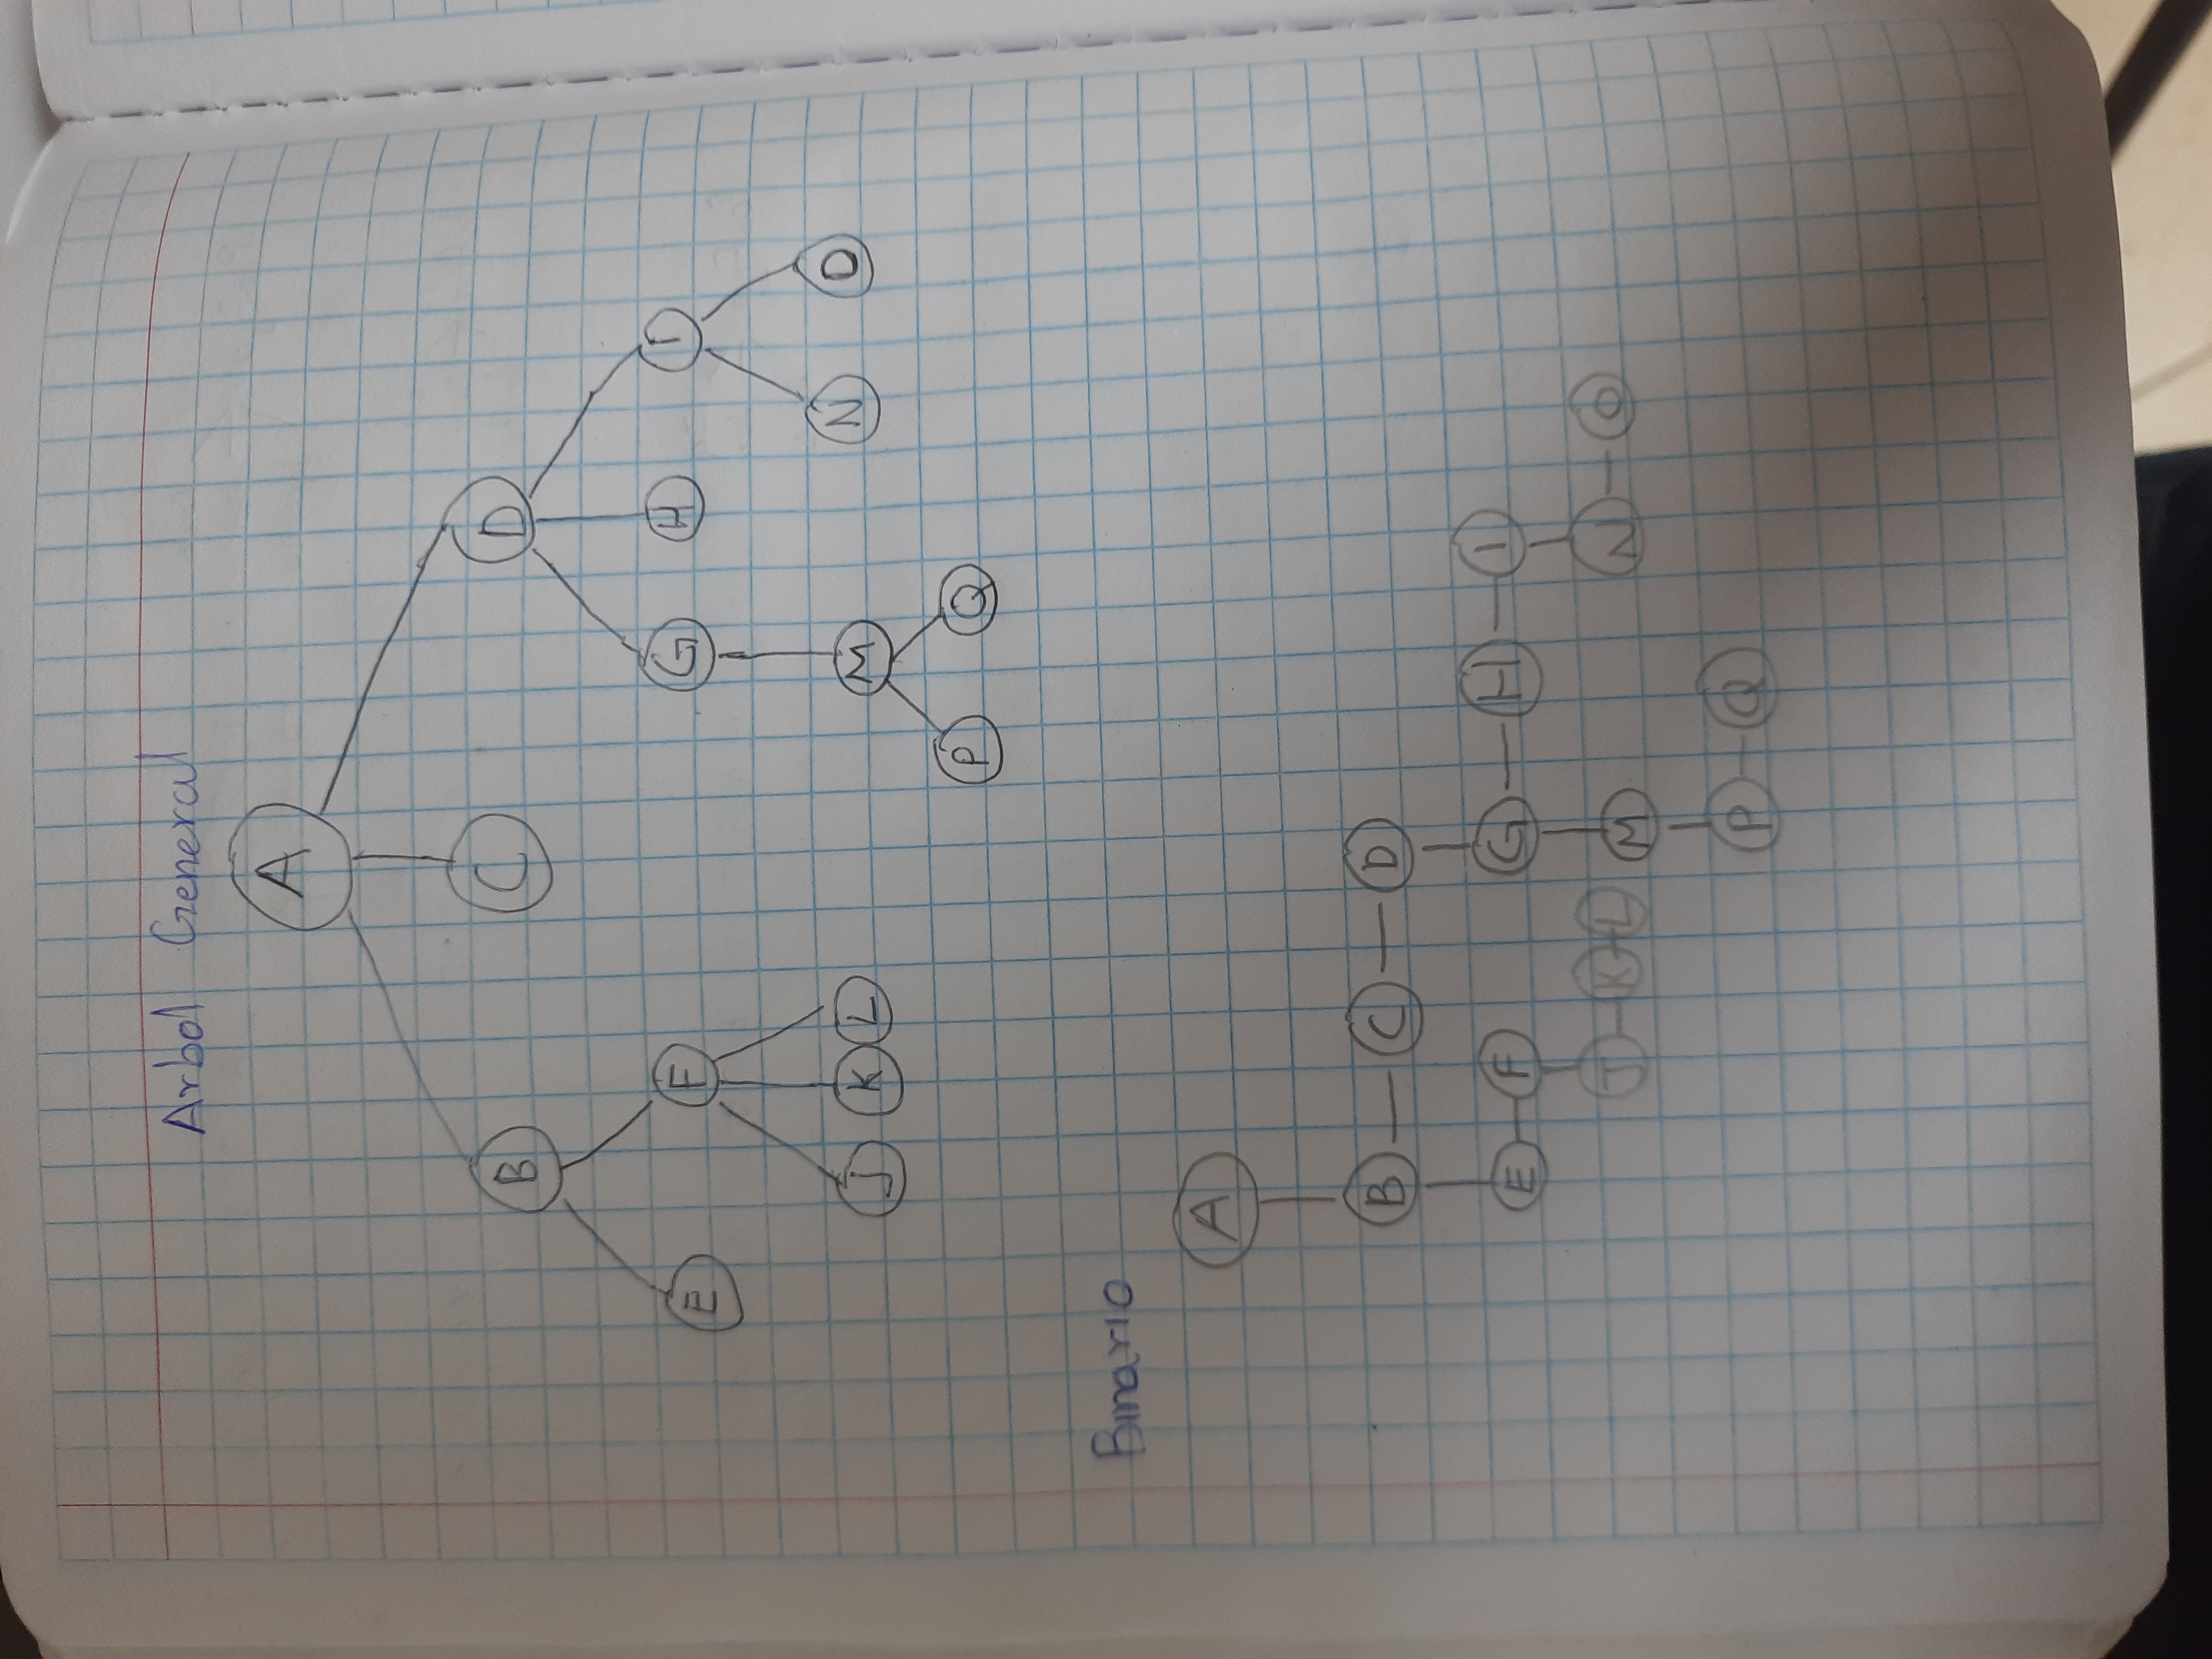 Arbol General
A
B C D
E F G H I
J K L M N O
P Q
Binario
A
B C D
E F G H I
J K L M N O
P Q